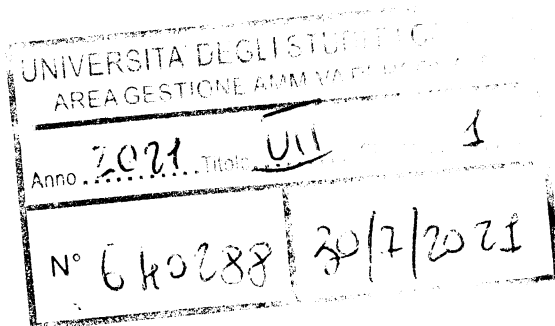 UNIVERSITA' DEGLI STUDI
AREA GESTIONE AMM.VA
Anno 2021 Titolo VII 1
N° 640288 30/7/2021